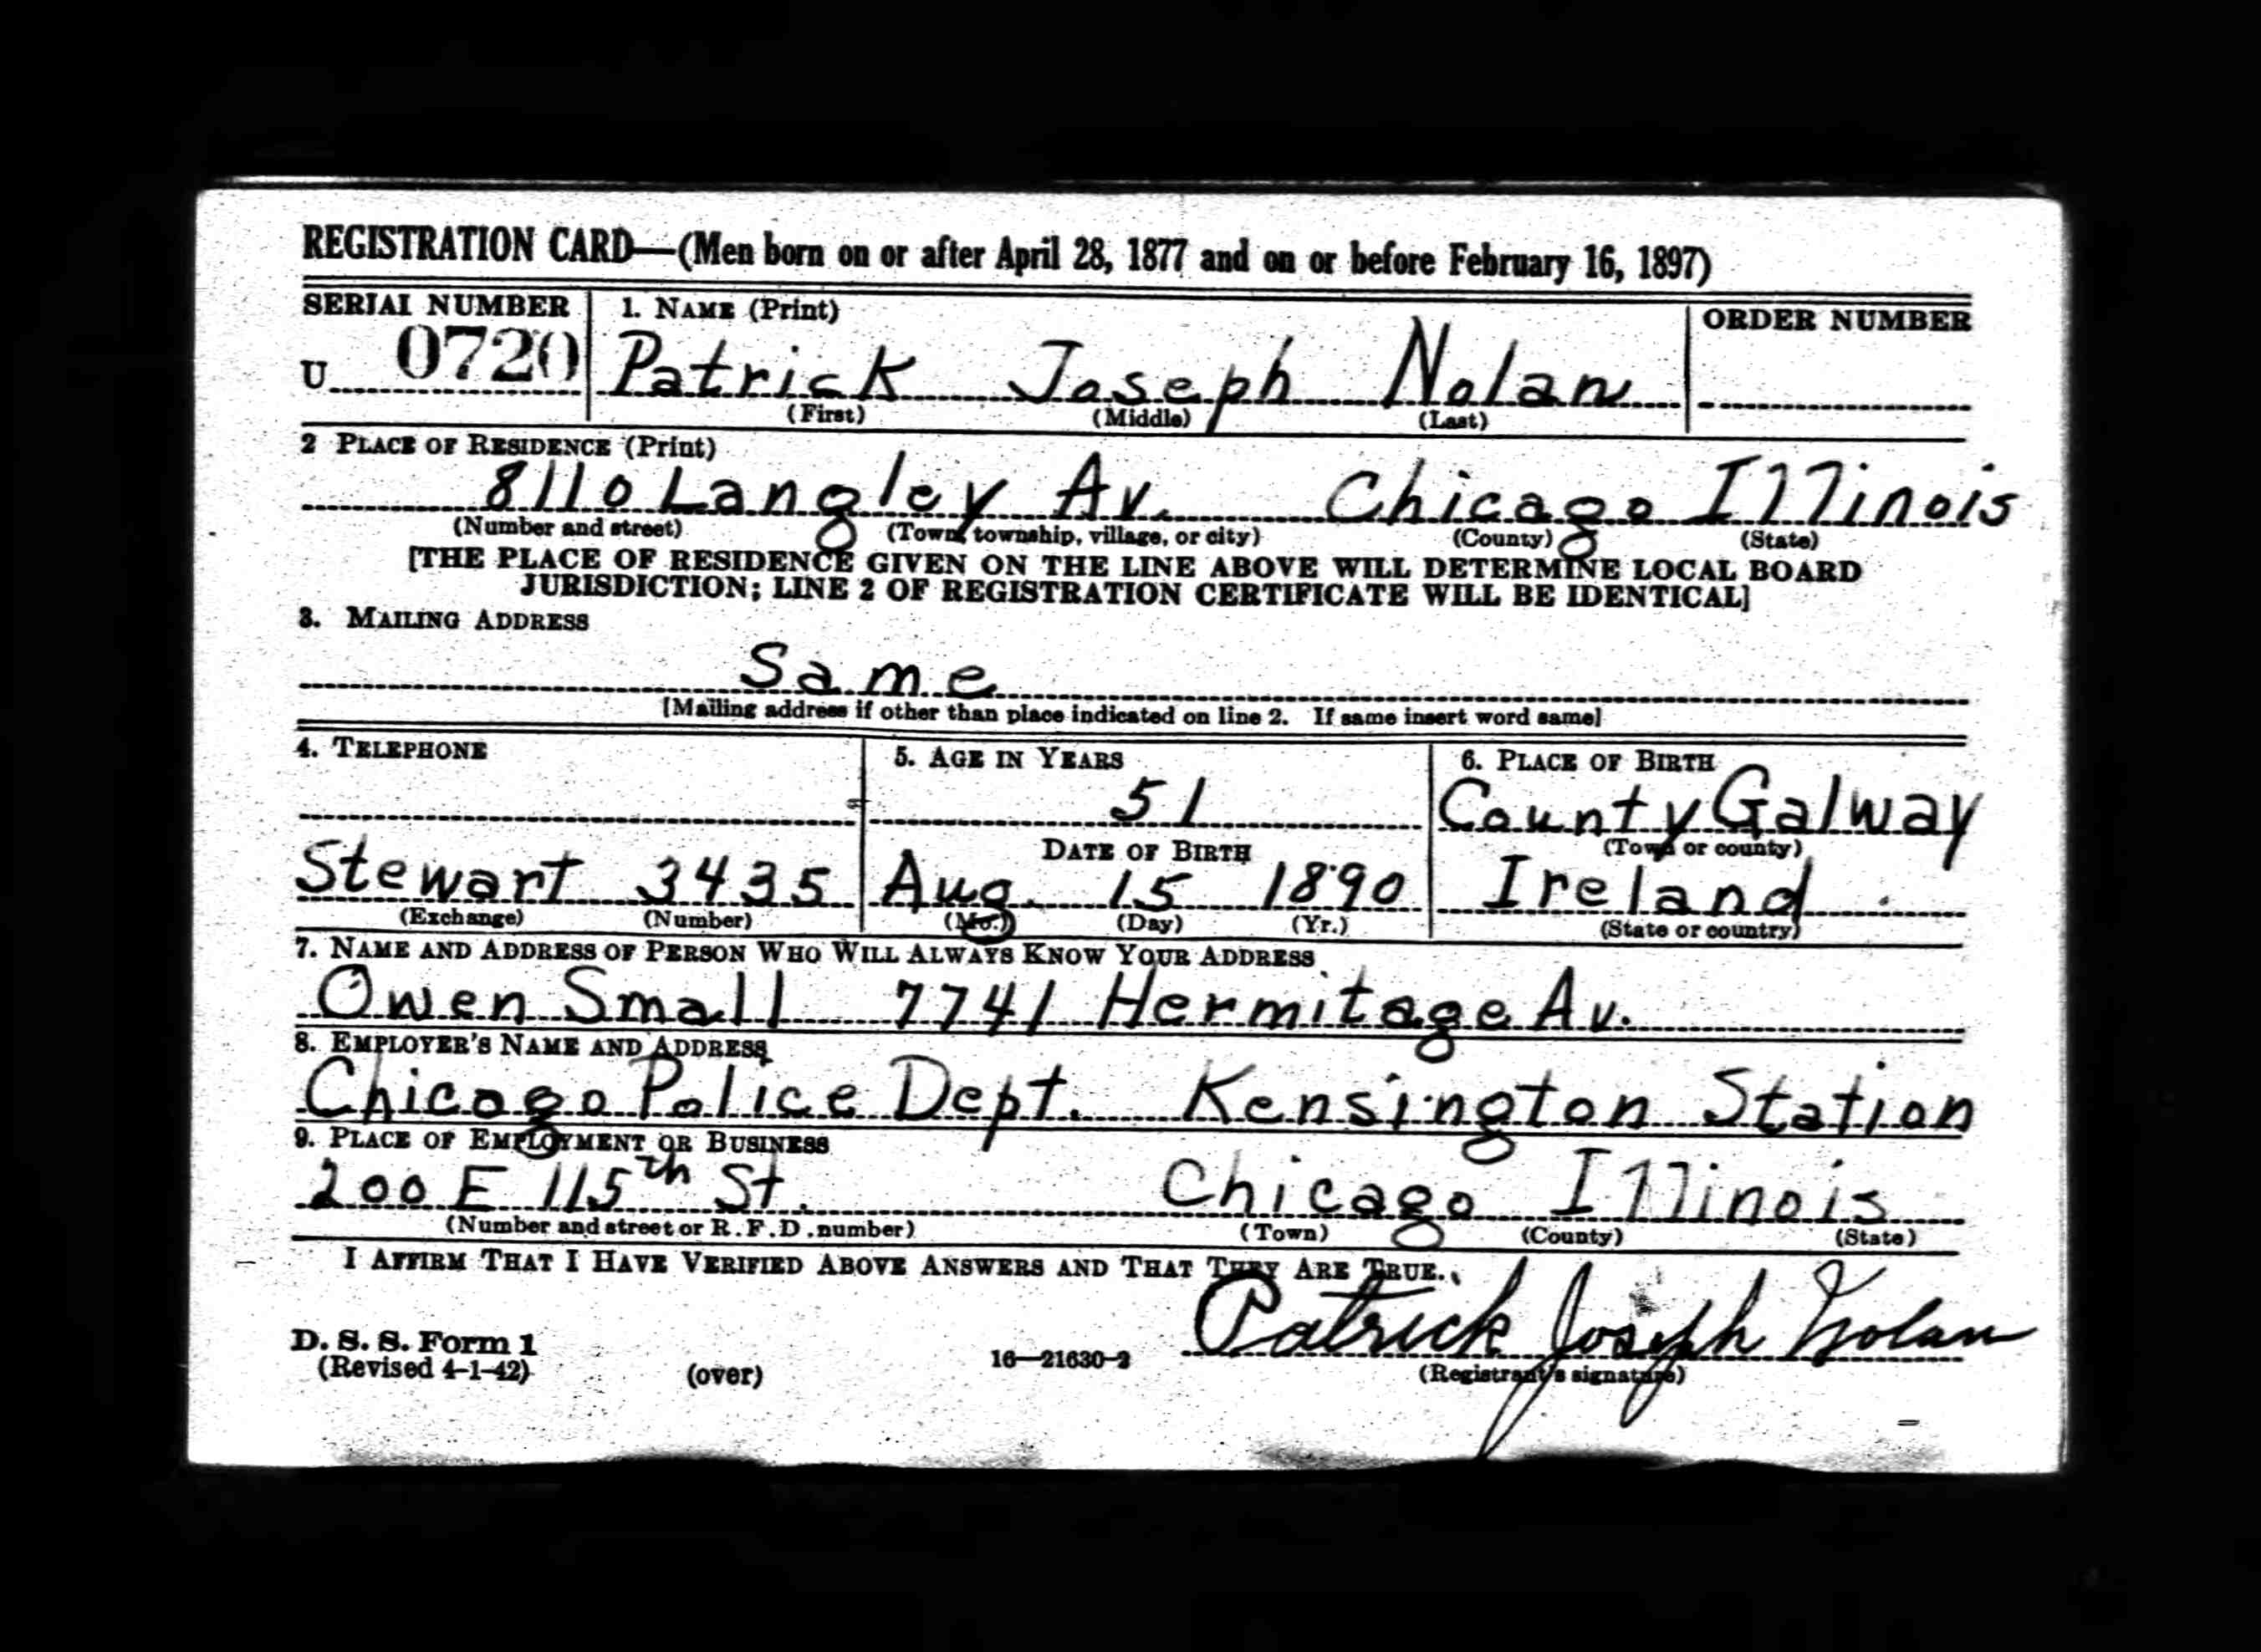 REGISTRATION CARD—(Men born on or after April 28, 1877 and on or before February 16, 1897)
SERIAL NUMBER 1. NAME (Print) ORDER NUMBER
U 0720 Patrick Joseph Nolan
(First) (Middle) (Last)
2 PLACE OF RESIDENCE (Print)
8110 Langley Av. Chicago Illinois
(Number and street) (Town, township, village, or city) (County) (State)
[THE PLACE OF RESIDENCE GIVEN ON THE LINE ABOVE WILL DETERMINE LOCAL BOARD
JURISDICTION; LINE 2 OF REGISTRATION CERTIFICATE WILL BE IDENTICAL]
3. MAILING ADDRESS
Same
[Mailing address if other than place indicated on line 2. If same insert word same]
4. TELEPHONE 5. AGE IN YEARS 6. PLACE OF BIRTH
51 County Galway
DATE OF BIRTH (Town or county)
Stewart 3435 Aug. 15 1890 Ireland
(Exchange) (Number) (Mo.) (Day) (Yr.) (State or country)
7. NAME AND ADDRESS OF PERSON WHO WILL ALWAYS KNOW YOUR ADDRESS
Owen Small 7741 Hermitage Av.
8. EMPLOYER'S NAME AND ADDRESS
Chicago Police Dept. Kensington Station
9. PLACE OF EMPLOYMENT OR BUSINESS
200 E 115th St. Chicago Illinois
(Number and street or R.F.D. number) (Town) (County) (State)
I AFFIRM THAT I HAVE VERIFIED ABOVE ANSWERS AND THAT THEY ARE TRUE.
Patrick Joseph Nolan
D. S. S. Form 1
(Revised 4-1-42) (over) 16—21630-2 (Registrant's signature)